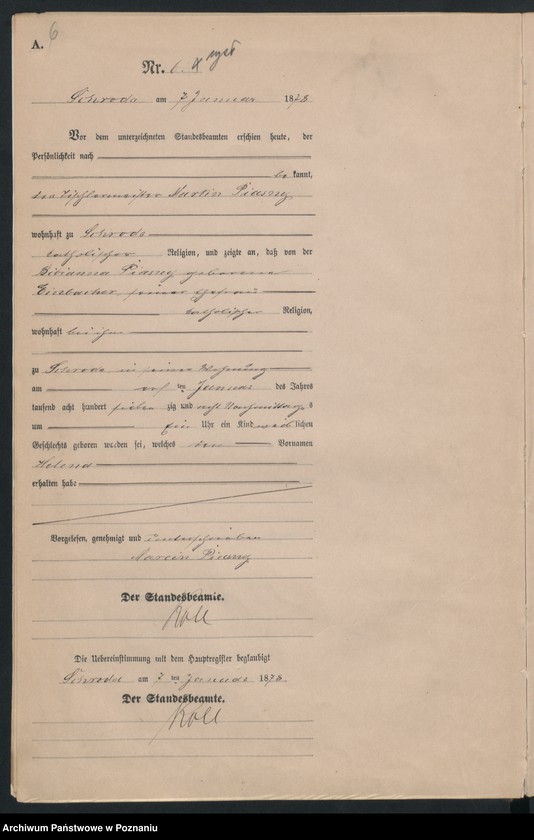 A. 6
Nr. 6.
Schroda am 7 Januar 1878
Vor dem unterzeichneten Standesbeamten erschien heute, der
Persönlichkeit nach
be kannt,
der Tischlermeister Martin
wohnhaft zu Schroda
katholischer Religion, und zeigte an, daß von der
Bibianna geborene
seiner Ehefrau
katholischer Religion,
wohnhaft bei ihm
zu Schroda in seiner Wohnung
am ten Januar des Jahres
tausend acht hundert sieben zig und acht Nachmittags
um Uhr ein Kind weib lichen
Geschlechts geboren worden sei, welches den Vornamen
Helena
erhalten habe
Vorgelesen, genehmigt und unterschrieben
Marcin
Der Standesbeamte.
Roll
Die Uebereinstimmung mit dem Hauptregister beglaubigt
Schroda am 7 ten Januar 1878
Der Standesbeamte.
Roll
Archiwum Państwowe w Poznaniu